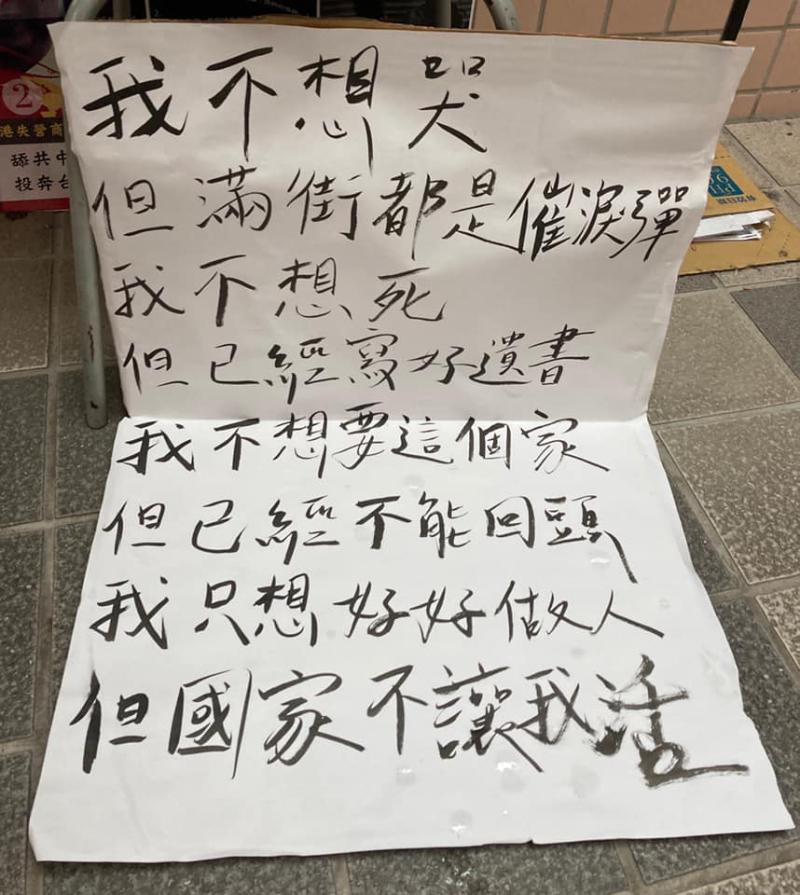 我不想哭
但滿街都是催淚彈
我不想死
但已經寫好遺書
我不想要這個家
但已經不能回頭
我只想好好做人
但國家不讓我活
2
港失營商
舔共中
投奔台